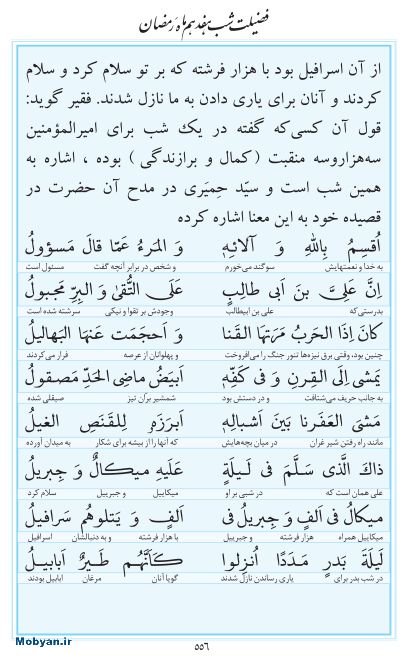 فضیلت شب هفدهم ماه رمضان
از آن اسرافیل بود با هزار فرشته که بر تو سلام کرد و سلام
کردند و آنان برای یاری دادن به ما نازل شدند. فقیر گوید:
قول آن کسی‌که گفته در یك شب برای امیرالمؤمنین
سه‌هزاروسه منقبت (کمال و برازندگی) بوده ، اشاره به
همین شب است و سیّد حِمیَری در مدح آن حضرت در
قصیده خود به این معنا اشاره کرده
اُقسِمُ بِاللهِ وَ آلائِهِ وَ المَرءُ عَمّا قالَ مَسؤولُ
به خدا و نعمتهایش سوگند می‌خورم و شخص در برابر آنچه گفت مسئول است
اِنَّ عَلِیَّ بنَ اَبی طالِبٍ عَلَی التُّقیٰ وَ البِرِّ مَجبولُ
بدرستی‌که علی بن ابیطالب وجودش بر تقوا و نیکی سرشته شده است
کانَ اِذَا الحَربُ مَرَتهَا القَنا وَ اَحجَمَت عَنهَا البَهالیلُ
چنین بود، وقتی برق نیزه‌ها تنور جنگ را می‌افروخت و پهلوانان از عرصه فرار می‌کردند
یَمشی اِلَی القِرنِ وَ فی کَفِّهِ اَبیَضُ ماضِی الحَدِّ مَصقولُ
به جانب حریف می‌شتافت و در دستش بود شمشیر برّان تیز صیقلی شده
مَشیَ العَفَرنا بَینَ اَشبالِهِ اَبرَزَهُ لِلقَنَصِ الغیلُ
مانند راه رفتن شیر غران در میان بچه‌هایش که آنها را از بیشه برای شکار به میدان آورده
ذاكَ الَّذی سَلَّمَ فی لَیلَةٍ عَلَیهِ میکالٌ وَ جِبریلُ
علی همان است که در شبی بر او میکاییل و جبرییل سلام کرد
میکالُ فی اَلفٍ وَ جِبریلُ فی اَلفٍ وَ یَتلوهُم سَرافیلُ
میکاییل همراه هزار فرشته و جبرییل با هزار فرشته و به دنبالشان اسرافیل
لَیلَةَ بَدرٍ مَدَدًا اُنزِلوا کَاَنَّهُم طَیرٌ اَبابیلُ
در شب بدر برای یاری رساندن نازل شدند گویا آنان مرغان ابابیل بودند
۵۵۶
Mobyan.ir